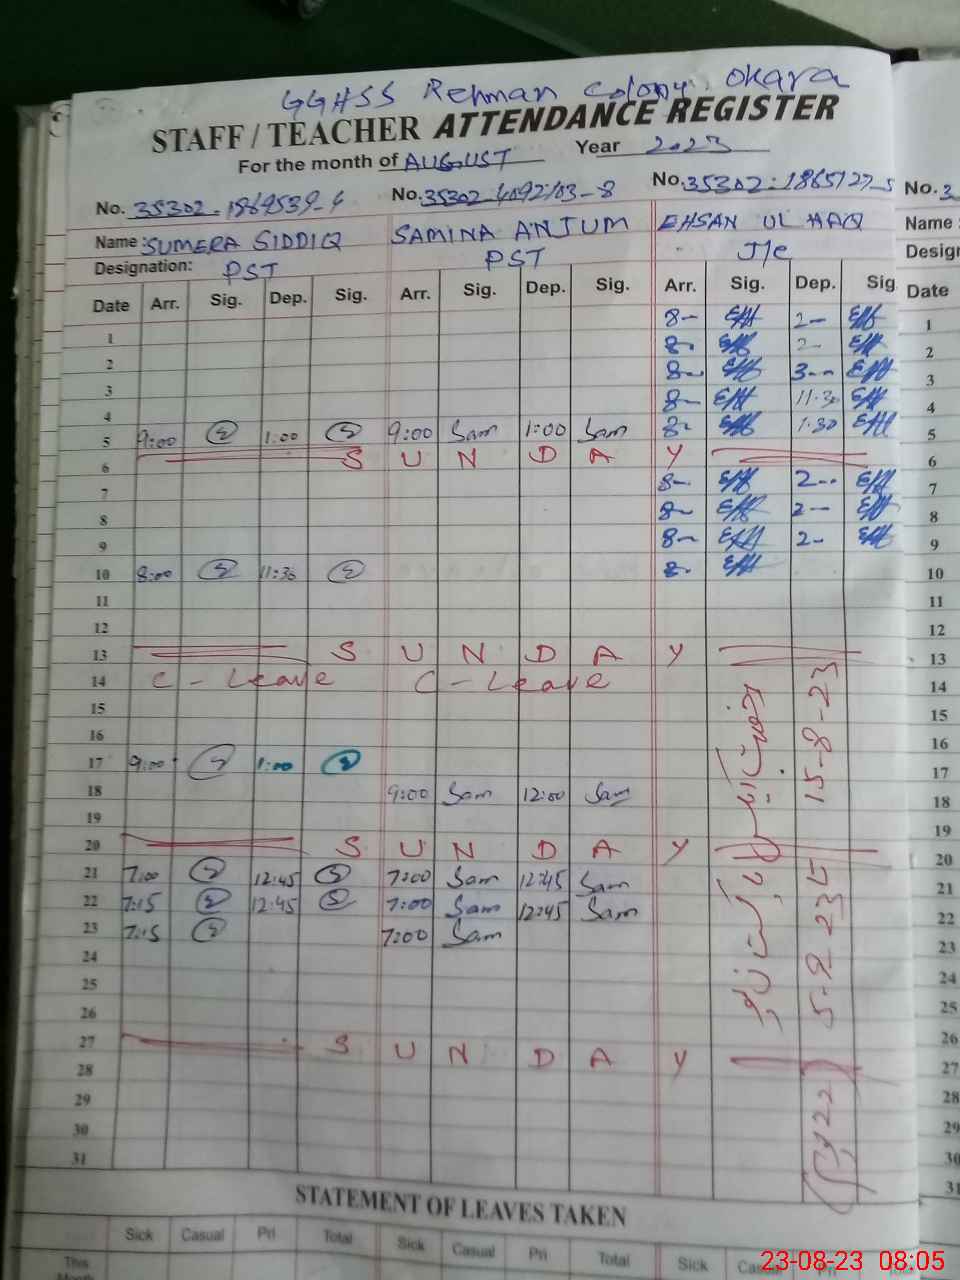 GGHSS Rehman Colony Okara
STAFF / TEACHER ATTENDANCE REGISTER
For the month of AUGUST Year 2023
No. No. No. No. 3
Name: SUMERA SIDDIQ SAMINA ANJUM EHSAN UL HAQ Name:
Designation: PST PST J/C
Date Arr. Sig. Dep. Sig. Arr. Sig. Dep. Sig. Arr. Sig. Dep. Sig Date
1 8- EH 2- EH 1
2 8- EH 2- EH 2
3 8- EH 3- EH 3
4 8- EH 11:30 EH 4
5 9:00 S 1:00 S 9:00 Sam 1:00 Sam 8- EH 1:30 EH 5
6 S U N D A Y 6
7 8- EH 2- EH 7
8 8- EH 2- EH 8
9 8- EH 2- EH 9
10 8:00 S 11:30 S 8- EH 10
11 11
12 12
13 S U N D A Y 13
14 C - Leave C - Leave 14
15 15
16 16
17 9:00 S 1:00 S 17
18 9:00 Sam 12:00 Sam 18
19 19
20 S U N D A Y 20
21 7:00 S 12:45 S 7:00 Sam 12:45 Sam 21
22 7:15 S 12:45 S 7:00 Sam 12:45 Sam 22
23 7:15 S 7:00 Sam 23
24 24
25 25
26 26
27 S U N D A Y 27
28 28
29 29
30 30
31 31
15-8-23
STATEMENT OF LEAVES TAKEN
Sick Casual Pri Total Sick Casual Pri Total Sick
This
23-08-23 08:05